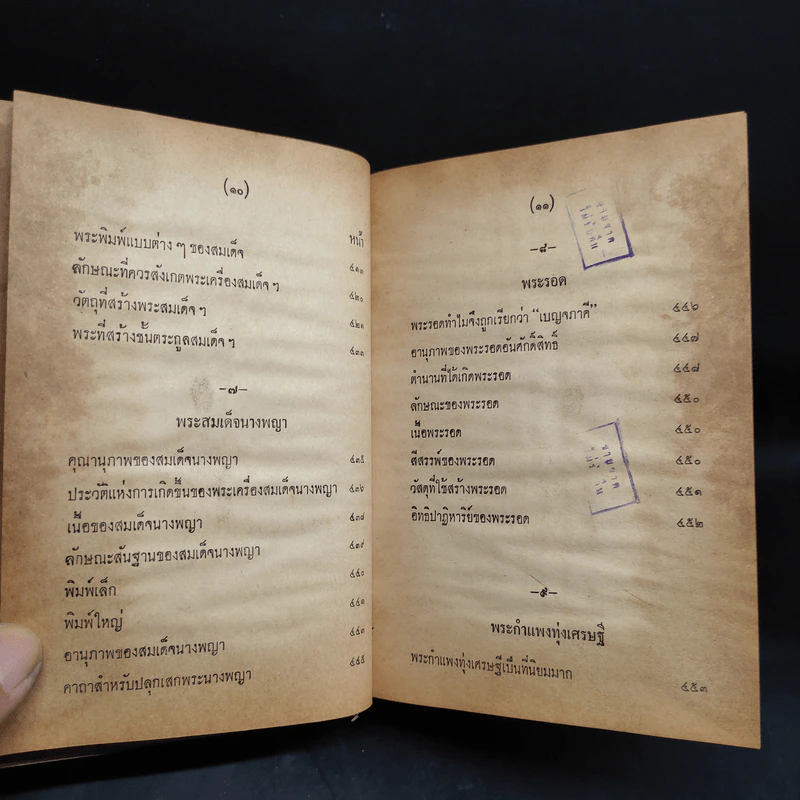 (๑๐)
หน้า
พระพิมพ์แบบต่าง ๆ ของสมเด็จ ๔๑๓
ลักษณะที่ควรสังเกตพระเครื่องสมเด็จ ๆ ๔๒๐
วัตถุที่สร้างพระสมเด็จ ๆ ๔๒๑
พระที่สร้างชั้นตระกูลสมเด็จ ๆ ๔๓๓
—๗—
พระสมเด็จนางพญา
คุณานุภาพของสมเด็จนางพญา ๔๓๕
ประวัติแห่งการเกิดขึ้นของพระเครื่องสมเด็จนางพญา ๔๓๖
เนื้อของสมเด็จนางพญา ๔๓๘
ลักษณะสันฐานของสมเด็จนางพญา ๔๓๙
พิมพ์เล็ก ๔๔๐
พิมพ์ใหญ่ ๔๔๑
อานุภาพของสมเด็จนางพญา ๔๔๓
คาถาสำหรับปลุกเสกพระนางพญา ๔๔๕
(๑๑)
—๘—
พระรอด
พระรอดทำไมจึงถูกเรียกว่า “เบญจภาคี” ๔๔๖
อานุภาพของพระรอดอันศักดิ์สิทธิ์ ๔๔๗
ตำนานที่ได้เกิดพระรอด ๔๔๘
ลักษณะของพระรอด ๔๕๐
เนื้อพระรอด ๔๕๐
สีสรรพ์ของพระรอด ๔๕๐
วัสดุที่ใช้สร้างพระรอด ๔๕๑
อิทธิปาฏิหาริย์ของพระรอด ๔๕๒
—๙—
พระกำแพงทุ่งเศรษฐี
พระกำแพงทุ่งเศรษฐีเป็นที่นิยมมาก ๔๕๓